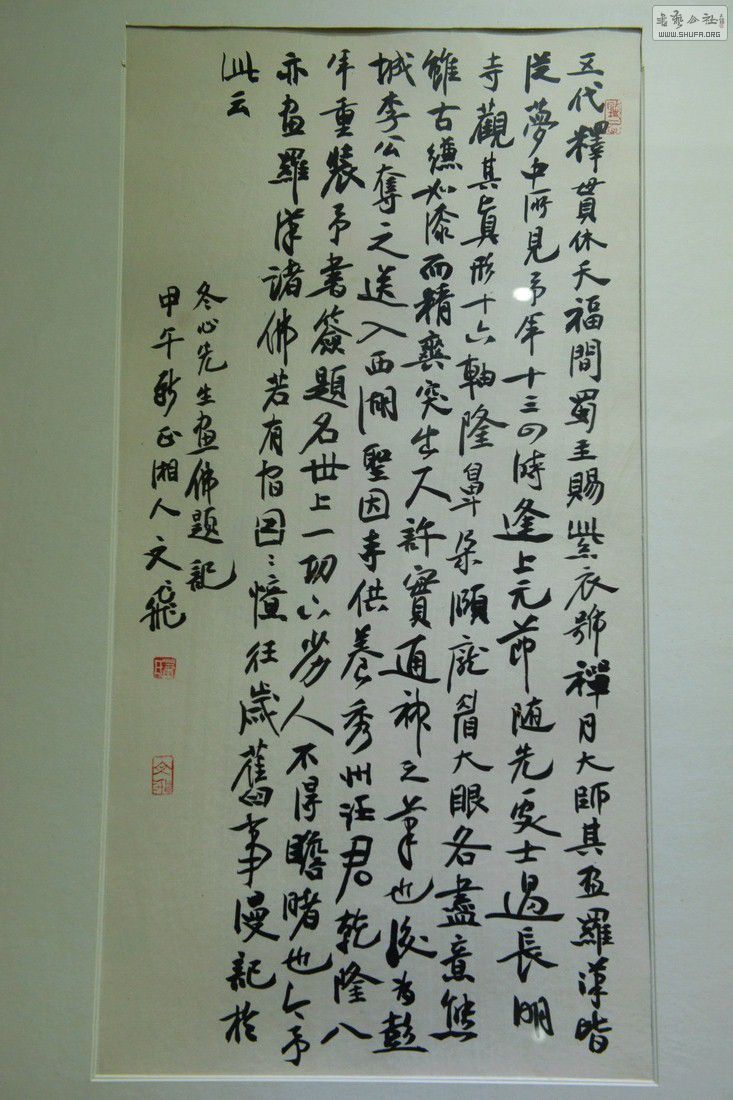 五代釋貫休天福間蜀主賜紫衣號禪月大師其畫羅漢皆
從夢中所見予年十三四時逢上元節随先處士過長明
寺觀其真形十六軸隆鼻朵頤庞眉大眼各盡意態
雖古縑如漆而精爽突出尺許實通神之筆也後為彭
城李公奪之送入西湖聖因寺供養秀州汪君乾隆八
年重裝予書簽題名世上一切下劣人不得瞻睹也今予
亦畫羅漢諸佛若有宿因因憶往歲舊事漫記於
此云
冬心先生畫佛題記
甲午新正湘人文飛
WWW.SHUFA.ORG